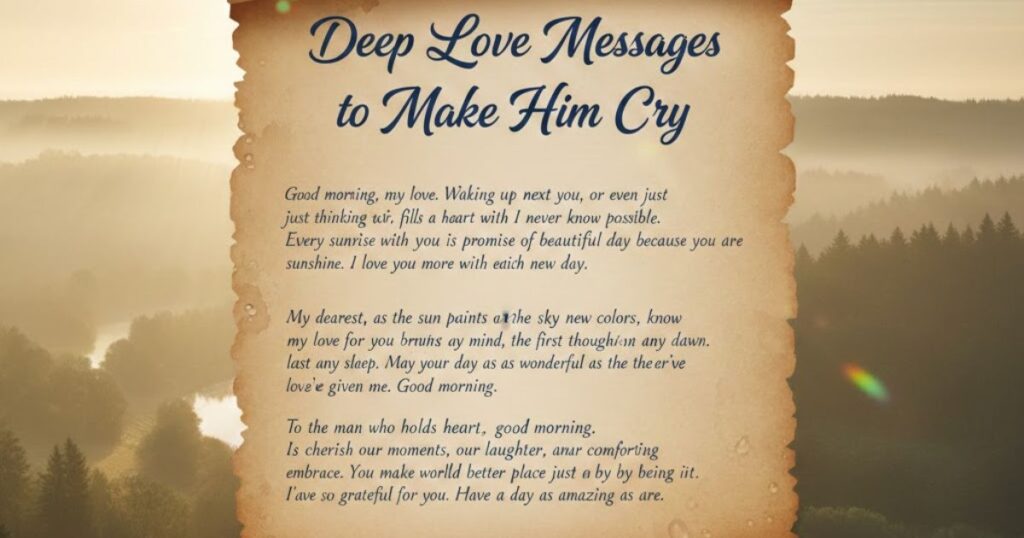 Deep Love Messages
to Make Him Cry
Good morning, my love. Waking up next you, or even just
just thinking fills a heart with I never know possible.
Every sunrise with you is promise of beautiful day because you are
sunshine. I love you more with each new day.
My dearest, as the sun paints the sky new colors, know
my love for you ay mind, the first any dawn.
last any sleep. May your day as as wonderful as the
given me. Good morning.
To the man who holds heart, good morning.
Is cherish our moments, our laughter, comforting
embrace. You make world better place just by by being
so grateful for you. Have a day as amazing as are.